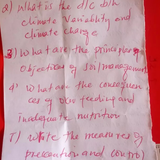 2) What is the d/c b/n
climate Variability and
climate change
3) What are the principle
objectives of soil management
4) What are the consequen
ces of over feeding and
inadequate nutrition
5) write the measures of
prevention and control